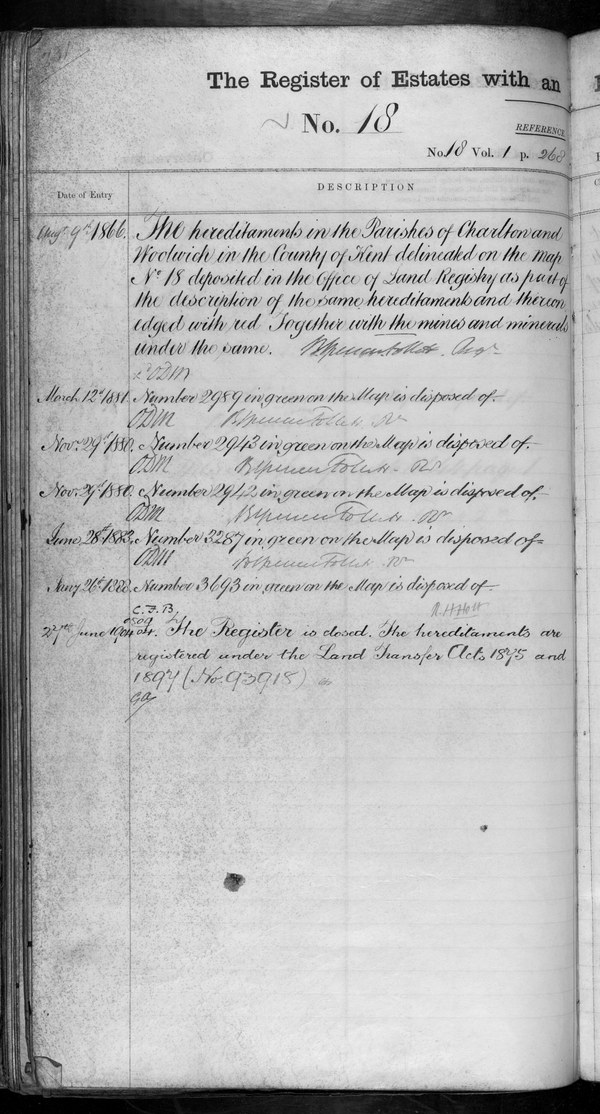 The Register of Estates with an
No. 18
REFERENCE
No. 18 Vol. 1 p. 268
Date of Entry
DESCRIPTION
Augt. 9th 1866. The hereditaments in the Parishes of Charlton and
Woolwich in the County of Kent delineated on the map
No 18 deposited in the Office of Land Registry as part of
the description of the same hereditaments and thereon
edged with red Together with the mines and minerals
under the same. Regr
ODM
March 12th 1881. Number 2989 in green on the Map is disposed of.
ODM
Novr. 29th 1880. Number 2943 in green on the Map is disposed of.
ODM
Novr. 29th 1880. Number 2942 in green on the Map is disposed of.
ODM
June 28th 1883. Number 3287 in green on the Map is disposed of
ODM
26th 1888. Number 3693 in green on the Map is disposed of
C.F.B.
27th June 1904. The Register is closed. The hereditaments are
registered under the Land Transfer Acts 1875 and
1897 (No. 93918)